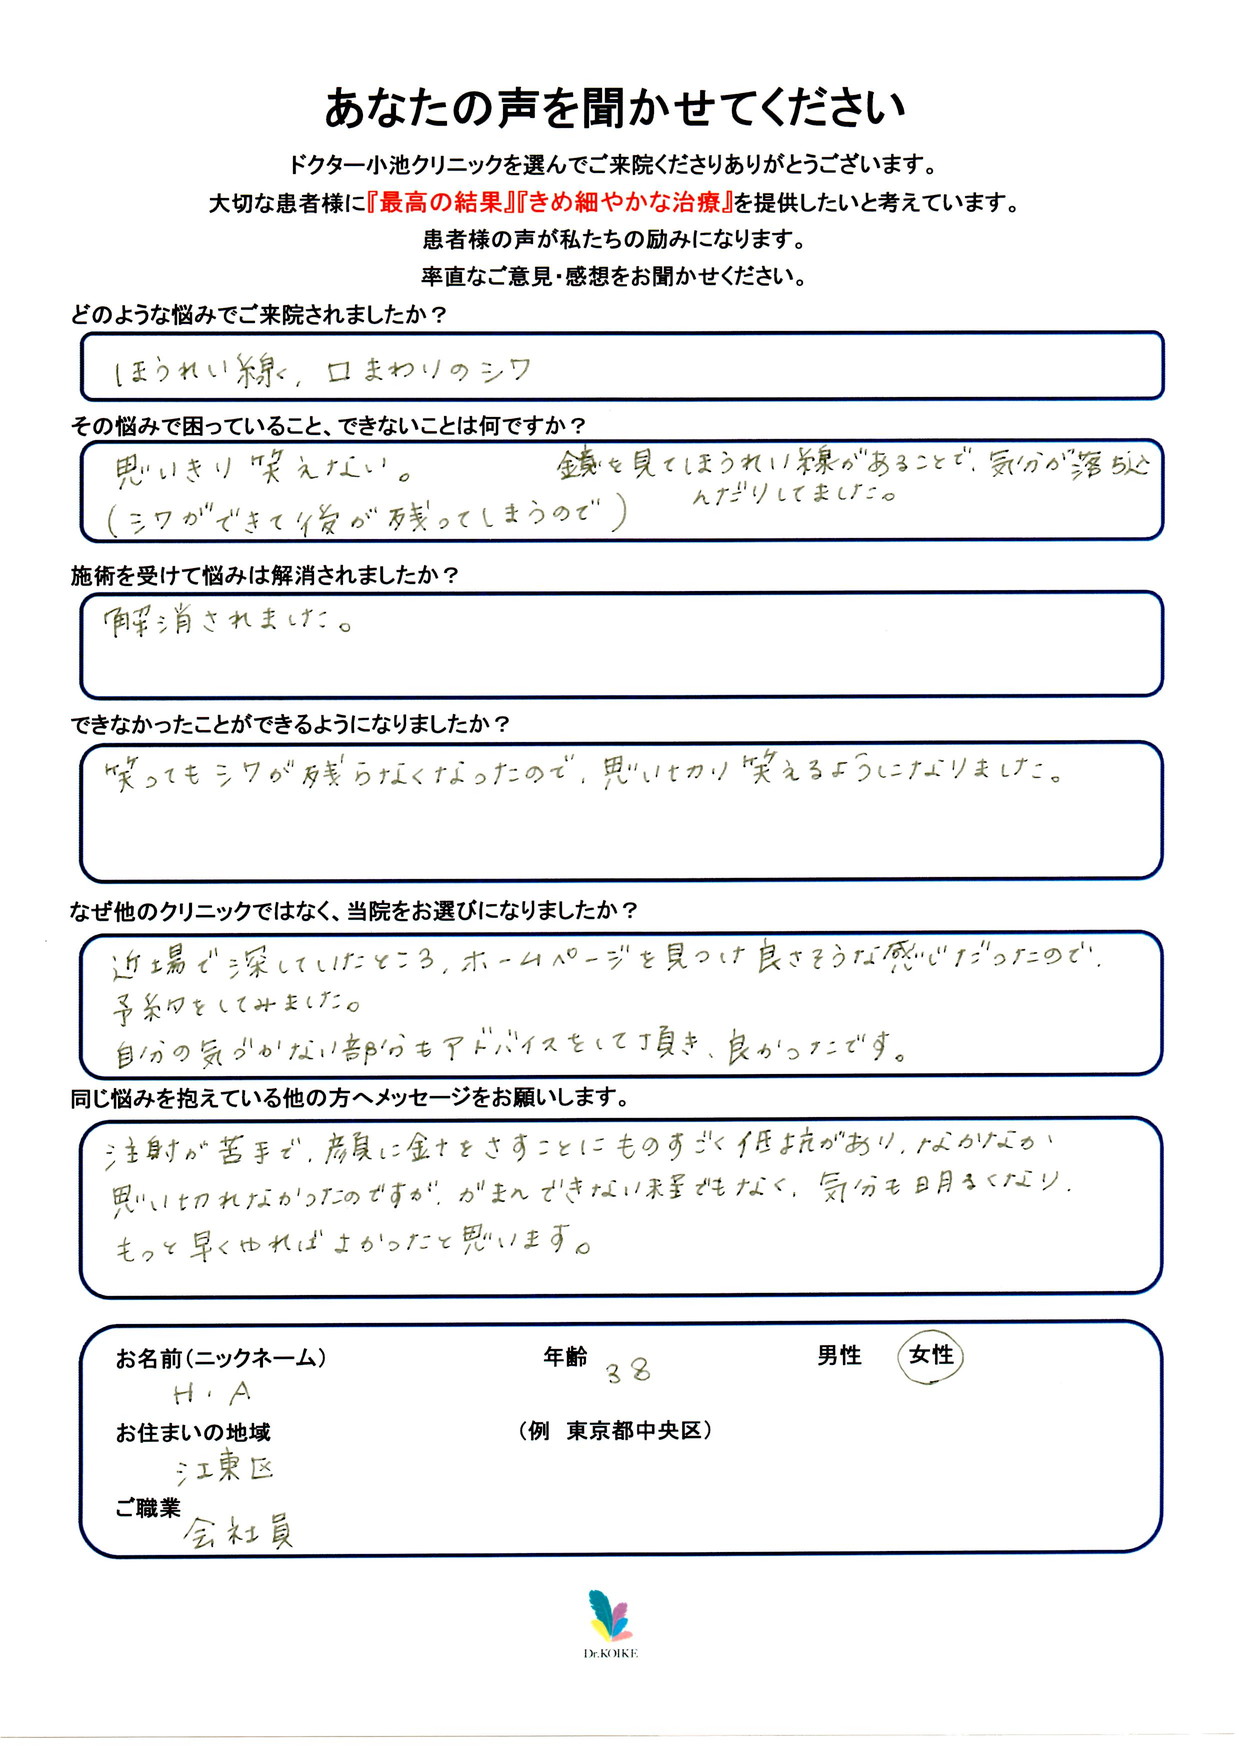 あなたの声を聞かせてください
ドクター小池クリニックを選んでご来院くださりありがとうございます。
大切な患者様に『最高の結果』『きめ細やかな治療』を提供したいと考えています。
患者様の声が私たちの励みになります。
率直なご意見・感想をお聞かせください。
どのような悩みでご来院されましたか？
ほうれい線、口まわりのシワ
その悩みで困っていること、できないことは何ですか？
思いきり笑えない。
(シワができて後が残ってしまうので)
鏡を見てほうれい線があることで、気分が落ち込
んだりしてました。
施術を受けて悩みは解消されましたか？
解消されました。
できなかったことができるようになりましたか？
笑ってもシワが残らなくなったので、思い切り笑えるようになりました。
なぜ他のクリニックではなく、当院をお選びになりましたか？
近場で深していたところ、ホームページを見つけ良さそうな感じだったので、
予約をしてみました。
自分の気づかない部分もアドバイスをして頂き、良かったです。
同じ悩みを抱えている他の方へメッセージをお願いします。
注射が苦手で、顔に金十をさすことにものすごく低抗があり、なかなか
思い切れなかったのですが、がまんできない程でもなく、気分も明るくなり、
もっと早くやればよかったと思います。
お名前(ニックネーム) 年齢 38 男性 女性
H.A
お住まいの地域 (例 東京都中央区)
江東区
ご職業
会社員
Dr.KOIKE